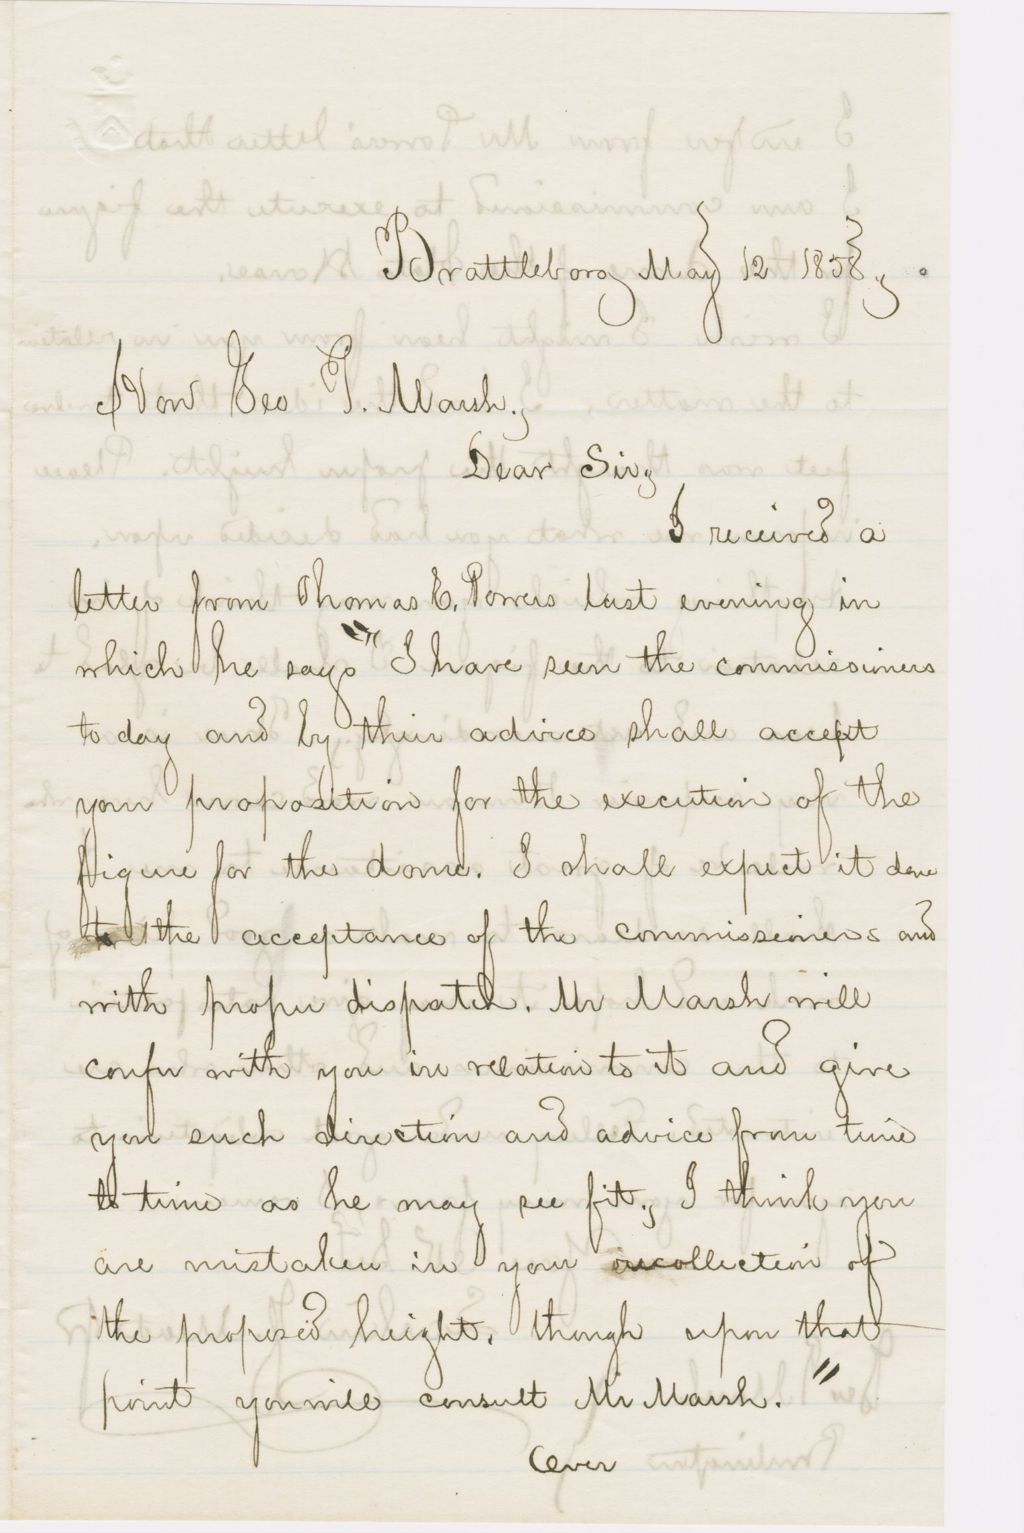 Brattleboro May 12 1858,
Hon Geo P. Marsh,
Dear Sir,
I received a
letter from Thomas E. Powers last evening in
which he says "I have seen the commissioners
to day and by their advice shall accept
your proposition for the execution of the
figure for the dome. I shall expect it done
to the acceptance of the commissioners and
with proper dispatch. Mr Marsh will
confer with you in relation to it and give
you such direction and advice from time
to time as he may see fit, I think you
are mistaken in your recollection of
the proposed height, though upon that
point you will consult Mr Marsh."
Over